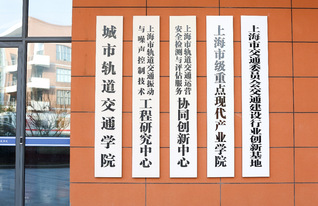 城市轨道交通学院
上海市轨道交通振动
与噪声控制技术
工程研究中心
上海市轨道交通运营
安全检测与评估服务
协同创新中心
上海市级重点现代产业学院
上海市交通委员会交通建设行业创新基地